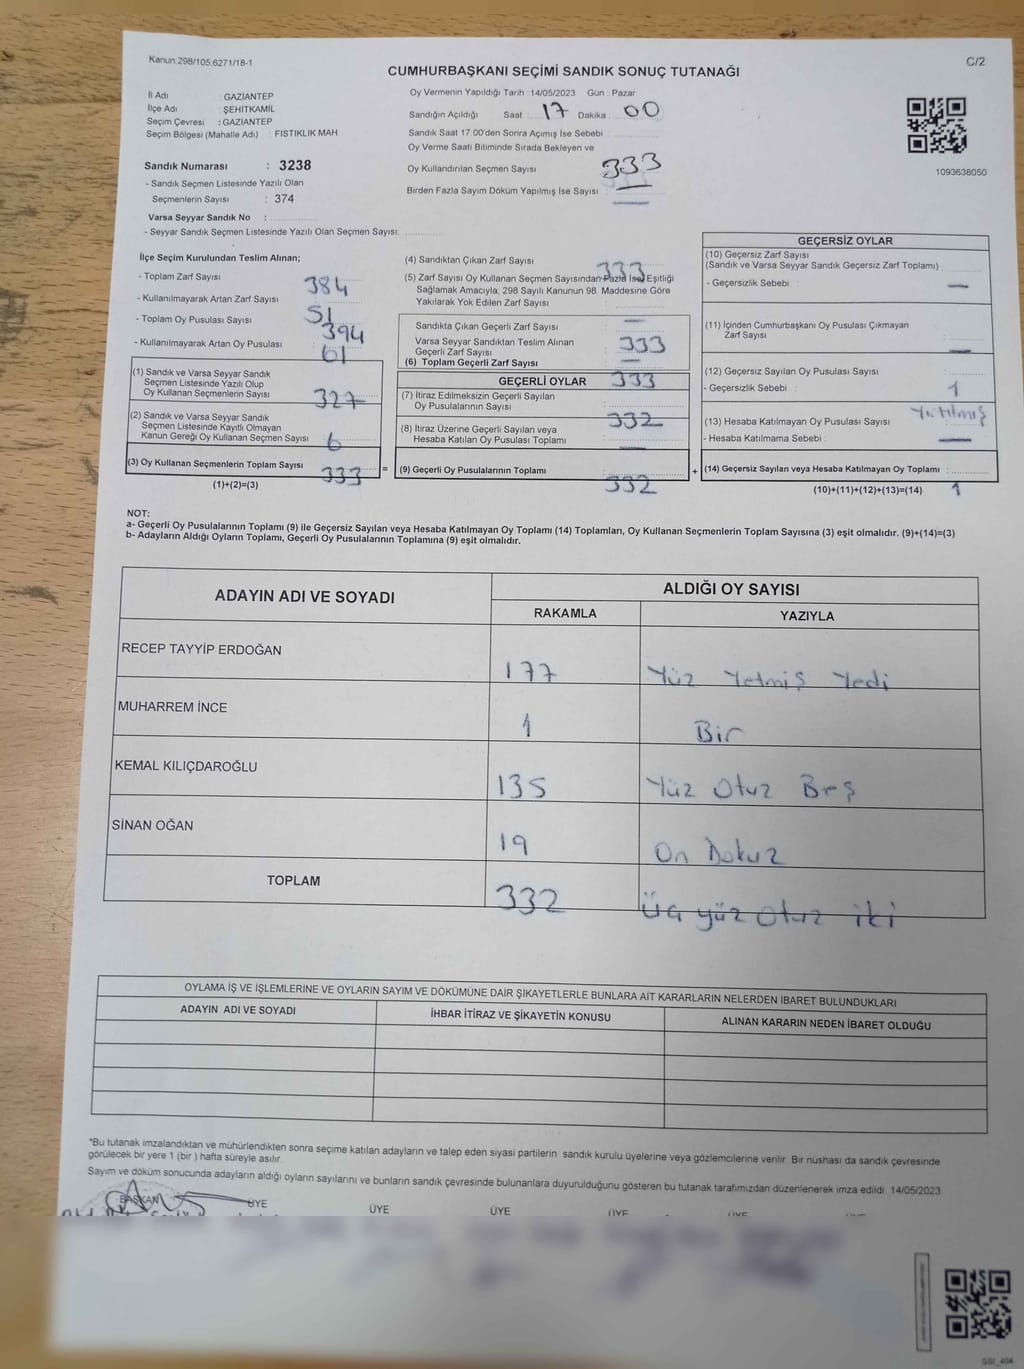 Kanun:298/105;6271/18-1
C/2
CUMHURBAŞKANI SEÇİMİ SANDIK SONUÇ TUTANAĞI
İl Adı : GAZİANTEP
İlçe Adı : ŞEHİTKAMİL
Seçim Çevresi : GAZİANTEP
Seçim Bölgesi (Mahalle Adı) : FISTIKLIK MAH.
Sandık Numarası : 3238
- Sandık Seçmen Listesinde Yazılı Olan
Seçmenlerin Sayısı : 374
Varsa Seyyar Sandık No :
- Seyyar Sandık Seçmen Listesinde Yazılı Olan Seçmen Sayısı:
Oy Vermenin Yapıldığı Tarih : 14/05/2023 Gün : Pazar
Sandığın Açıldığı Saat : 17 Dakika : 00
Sandık Saat 17:00'den Sonra Açımış İse Sebebi :
Oy Verme Saati Bitiminde Sırada Bekleyen ve
Oy Kullandırılan Seçmen Sayısı 333
Birden Fazla Sayım Döküm Yapılmış İse Sayısı : —
1093638050
İlçe Seçim Kurulundan Teslim Alınan;
- Toplam Zarf Sayısı : 384
- Kullanılmayarak Artan Zarf Sayısı : 51
- Toplam Oy Pusulası Sayısı : 394
- Kullanılmayarak Artan Oy Pusulası : 61
(1) Sandık ve Varsa Seyyar Sandık
Seçmen Listesinde Yazılı Olup
Oy Kullanan Seçmenlerin Sayısı : 327
(2) Sandık ve Varsa Seyyar Sandık
Seçmen Listesinde Kayıtlı Olmayan
Kanun Gereği Oy Kullanan Seçmen Sayısı : 6
(3) Oy Kullanan Seçmenlerin Toplam Sayısı 333
(1)+(2)=(3)
=
(4) Sandıktan Çıkan Zarf Sayısı : 333
(5) Zarf Sayısı Oy Kullanan Seçmen Sayısından Fazla İse) Eşitliği
Sağlamak Amacıyla; 298 Sayılı Kanunun 98. Maddesine Göre
Yakılarak Yok Edilen Zarf Sayısı : —
Sandıkta Çıkan Geçerli Zarf Sayısı : 333
Varsa Seyyar Sandıktan Teslim Alınan
Geçerli Zarf Sayısı : —
(6) Toplam Geçerli Zarf Sayısı : 333
GEÇERLİ OYLAR
(7) İtiraz Edilmeksizin Geçerli Sayılan
Oy Pusulalarının Sayısı : 332
(8) İtiraz Üzerine Geçerli Sayılan veya
Hesaba Katılan Oy Pusulası Toplamı : —
(9) Geçerli Oy Pusulalarının Toplamı : 332
+
GEÇERSİZ OYLAR
(10) Geçersiz Zarf Sayısı
(Sandık ve Varsa Seyyar Sandık Geçersiz Zarf Toplamı) :
- Geçersizlik Sebebi : —
(11) İçinden Cumhurbaşkanı Oy Pusulası Çıkmayan
Zarf Sayısı : —
(12) Geçersiz Sayılan Oy Pusulası Sayısı : 1
- Geçersizlik Sebebi : Yırtılmış
(13) Hesaba Katılmayan Oy Pusulası Sayısı : —
- Hesaba Katılmama Sebebi :
(14) Geçersiz Sayılan veya Hesaba Katılmayan Oy Toplamı : 1
(10)+(11)+(12)+(13)=(14)
NOT:
a- Geçerli Oy Pusulalarının Toplamı (9) ile Geçersiz Sayılan veya Hesaba Katılmayan Oy Toplamı (14) Toplamları, Oy Kullanan Seçmenlerin Toplam Sayısına (3) eşit olmalıdır. (9)+(14)=(3)
b- Adayların Aldığı Oyların Toplamı, Geçerli Oy Pusulalarının Toplamına (9) eşit olmalıdır.
ADAYIN ADI VE SOYADI ALDIĞI OY SAYISI
RAKAMLA YAZIYLA
RECEP TAYYİP ERDOĞAN 177 Yüz Yetmiş Yedi
MUHARREM İNCE 1 Bir
KEMAL KILIÇDAROĞLU 135 Yüz Otuz Beş
SİNAN OĞAN 19 On Dokuz
TOPLAM 332 Üç yüz Otuz iki
OYLAMA İŞ VE İŞLEMLERİNE VE OYLARIN SAYIM VE DÖKÜMÜNE DAİR ŞİKAYETLERLE BUNLARA AİT KARARLARIN NELERDEN İBARET BULUNDUKLARI
ADAYIN ADI VE SOYADI İHBAR İTİRAZ VE ŞİKAYETİN KONUSU ALINAN KARARIN NEDEN İBARET OLDUĞU
*Bu tutanak imzalandıktan ve mühürlendikten sonra seçime katılan adayların ve talep eden siyasi partilerin sandık kurulu üyelerine veya gözlemcilerine verilir. Bir nüshası da sandık çevresinde
görülecek bir yere 1 (bir ) hafta süreyle asılır.
Sayım ve döküm sonucunda adayların aldığı oyların sayılarını ve bunların sandık çevresinde bulunanlara duyurulduğunu gösteren bu tutanak tarafımızdan düzenlenerek imza edildi. 14/05/2023
BAŞKAN ÜYE ÜYE ÜYE ÜYE ÜYE